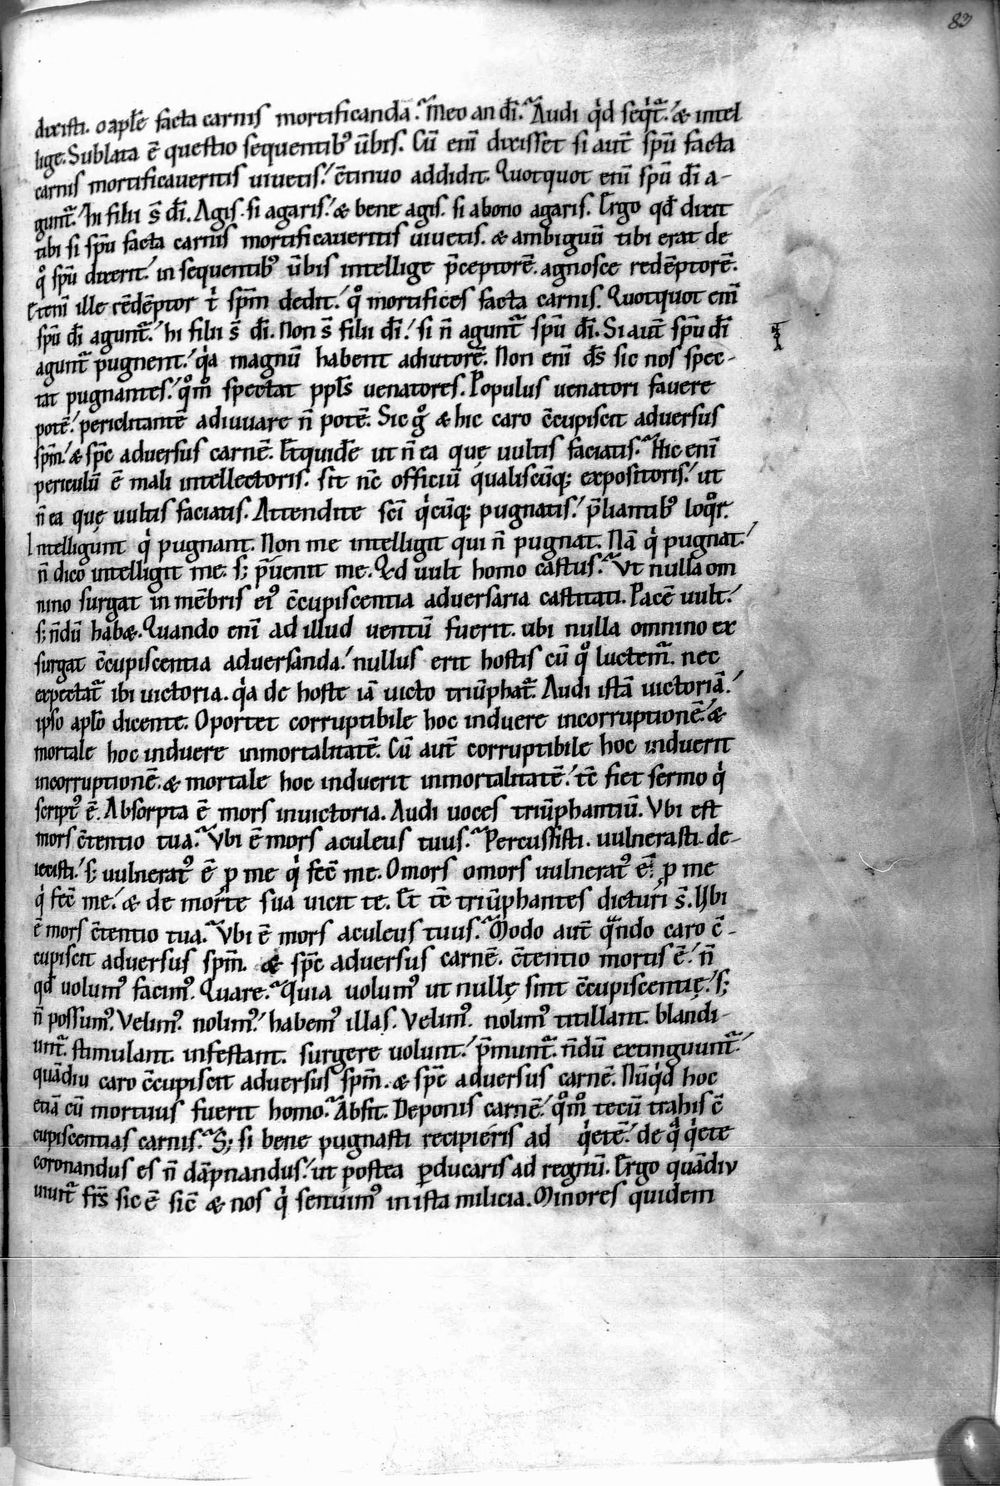 83
dixisti. o aplē facta carnis mortificanda? Meo an dī? Audi qͥd seqͥt̄. & intel
lige. Sublata ē questio sequentib; ūbis. Cū enī dixisset si aut̄ spū facta
carnis mortificaveritis vivetis. c̄tinuo addidit. Quotquot enī spū dī a-
gunt̄. hi filii s̄ dī. Agis. si agaris. & bene agis. si abono agaris. Ergo qd̄ dixit
tibi si spū facta carnis mortificaveritis vivetis. & ambiguū tibi erat de
qͦ spū dixerit. in sequentib; ūbis intellige p̄ceptorē. agnosce redēptorē.
Etenī ille redēptor t̄ spm̄ dedit. qͦ mortifices facta carnis. Quotquot enī
spū dī agunt̄. hi filii s̄ dī. Non s̄ filii dī. si n̄ agunt̄ spū dī. Si aut̄ spū dī
agunt̄ pugnent. qͥa magnū habent adiutorē. Non enī ds̄ sic nos spec-
tat pugnantes. qͦm̊ spectat ppls̄ venatores. Populus venatori favere
potē. periclitantē adiuvare n̄ potē. Sic g̊ & hic caro c̄cupiscit adversus
spm̄. & spc̄ adversus carnē. Et quidē ut n̄ ea quę vultis faciatis. Hic enī
periculū ē mali intellectoris. sit nc̄ officiū qualiscūq; expositoris. ut
n̄ ea quę vultis faciatis. Attendite scī qͥcūq; pugnatis. p̄liantib; loqͦr.
Intelligunt qͥ pugnant. Non me intelligit qui n̄ pugnat. Nā qͥ pugnat.
n̄ dico intelligit me. s; p̄venit me. Qd vult homo castus? Ut nulla om
nino surgat in mēbris ei᾿ c̄cupiscentia adversaria castitati. Pacē vult.
s; n̄dū habet. Quando enī ad illud ventū fuerit. ubi nulla omnino ex
surgat c̄cupiscentia adversanda. nullus erit hostis cū qͦ luctem̄. nec
expectat̄ ibi victoria. qͥa de hoste iā victo triūphat̄. Audi istā victoriā.
ipso aplō dicente. Oportet corruptibile hoc induere incorruptionē. &
mortale hoc induere inmortalitatē. Cū aut̄ corruptibile hoc induerit
incorruptionē. & mortale hoc induerit inmortalitatē. tc̄ fiet sermo qͥ
script᾿ ē. Absorpta ē mors in victoria. Audi voces triūphantiū. Ubi est
mors c̄tentio tua? Ubi ē mors aculeus tuus? Percussisti. vulnerasti. de-
iecisti. s; vulnerat᾿ ē p me qͥ fec̄ me. O mors o mors vulnerat᾿ ē p me
qͥ fec̄ me. & de morte sua vicit te. Et tc̄ triūphantes dicturi s̄. Ubi
ē mors c̄tentio tua? Ubi ē mors aculeus tuus? Modo aut̄ qͣndo caro c̄-
cupiscit adversus spm̄. & spc̄ adversus carnē. c̄tentio mortis ē. n̄
qd̄ volum᾿ facim᾿. Quare? Quia volum᾿ ut nullę sint c̄cupiscentię. s;
n̄ possum᾿. Velim᾿. nolim᾿. habem᾿ illas. Velim᾿. nolim᾿ titillant. blandi-
unt̄. stimulant. infestant. surgere volunt. p̄munt̄. n̄dū extinguunt̄.
quādiu caro c̄cupiscit adversus spm̄. & spc̄ adversus carnē. Nūqͥd hoc
etiā cū mortuus fuerit homo? Absit. Deponis carnē. qͦm̊ tecū trahis c̄
cupiscentias carnis? S; si bene pugnasti recipieris ad qͥetē. de qͣ qͥete
coronandus es n̄ dāpnandus. ut postea pducaris ad regnū. Ergo quādiu
vivit̄ frs̄ sic ē sic̄ & nos qͥ senuim᾿ in ista milicia. Minores quidem